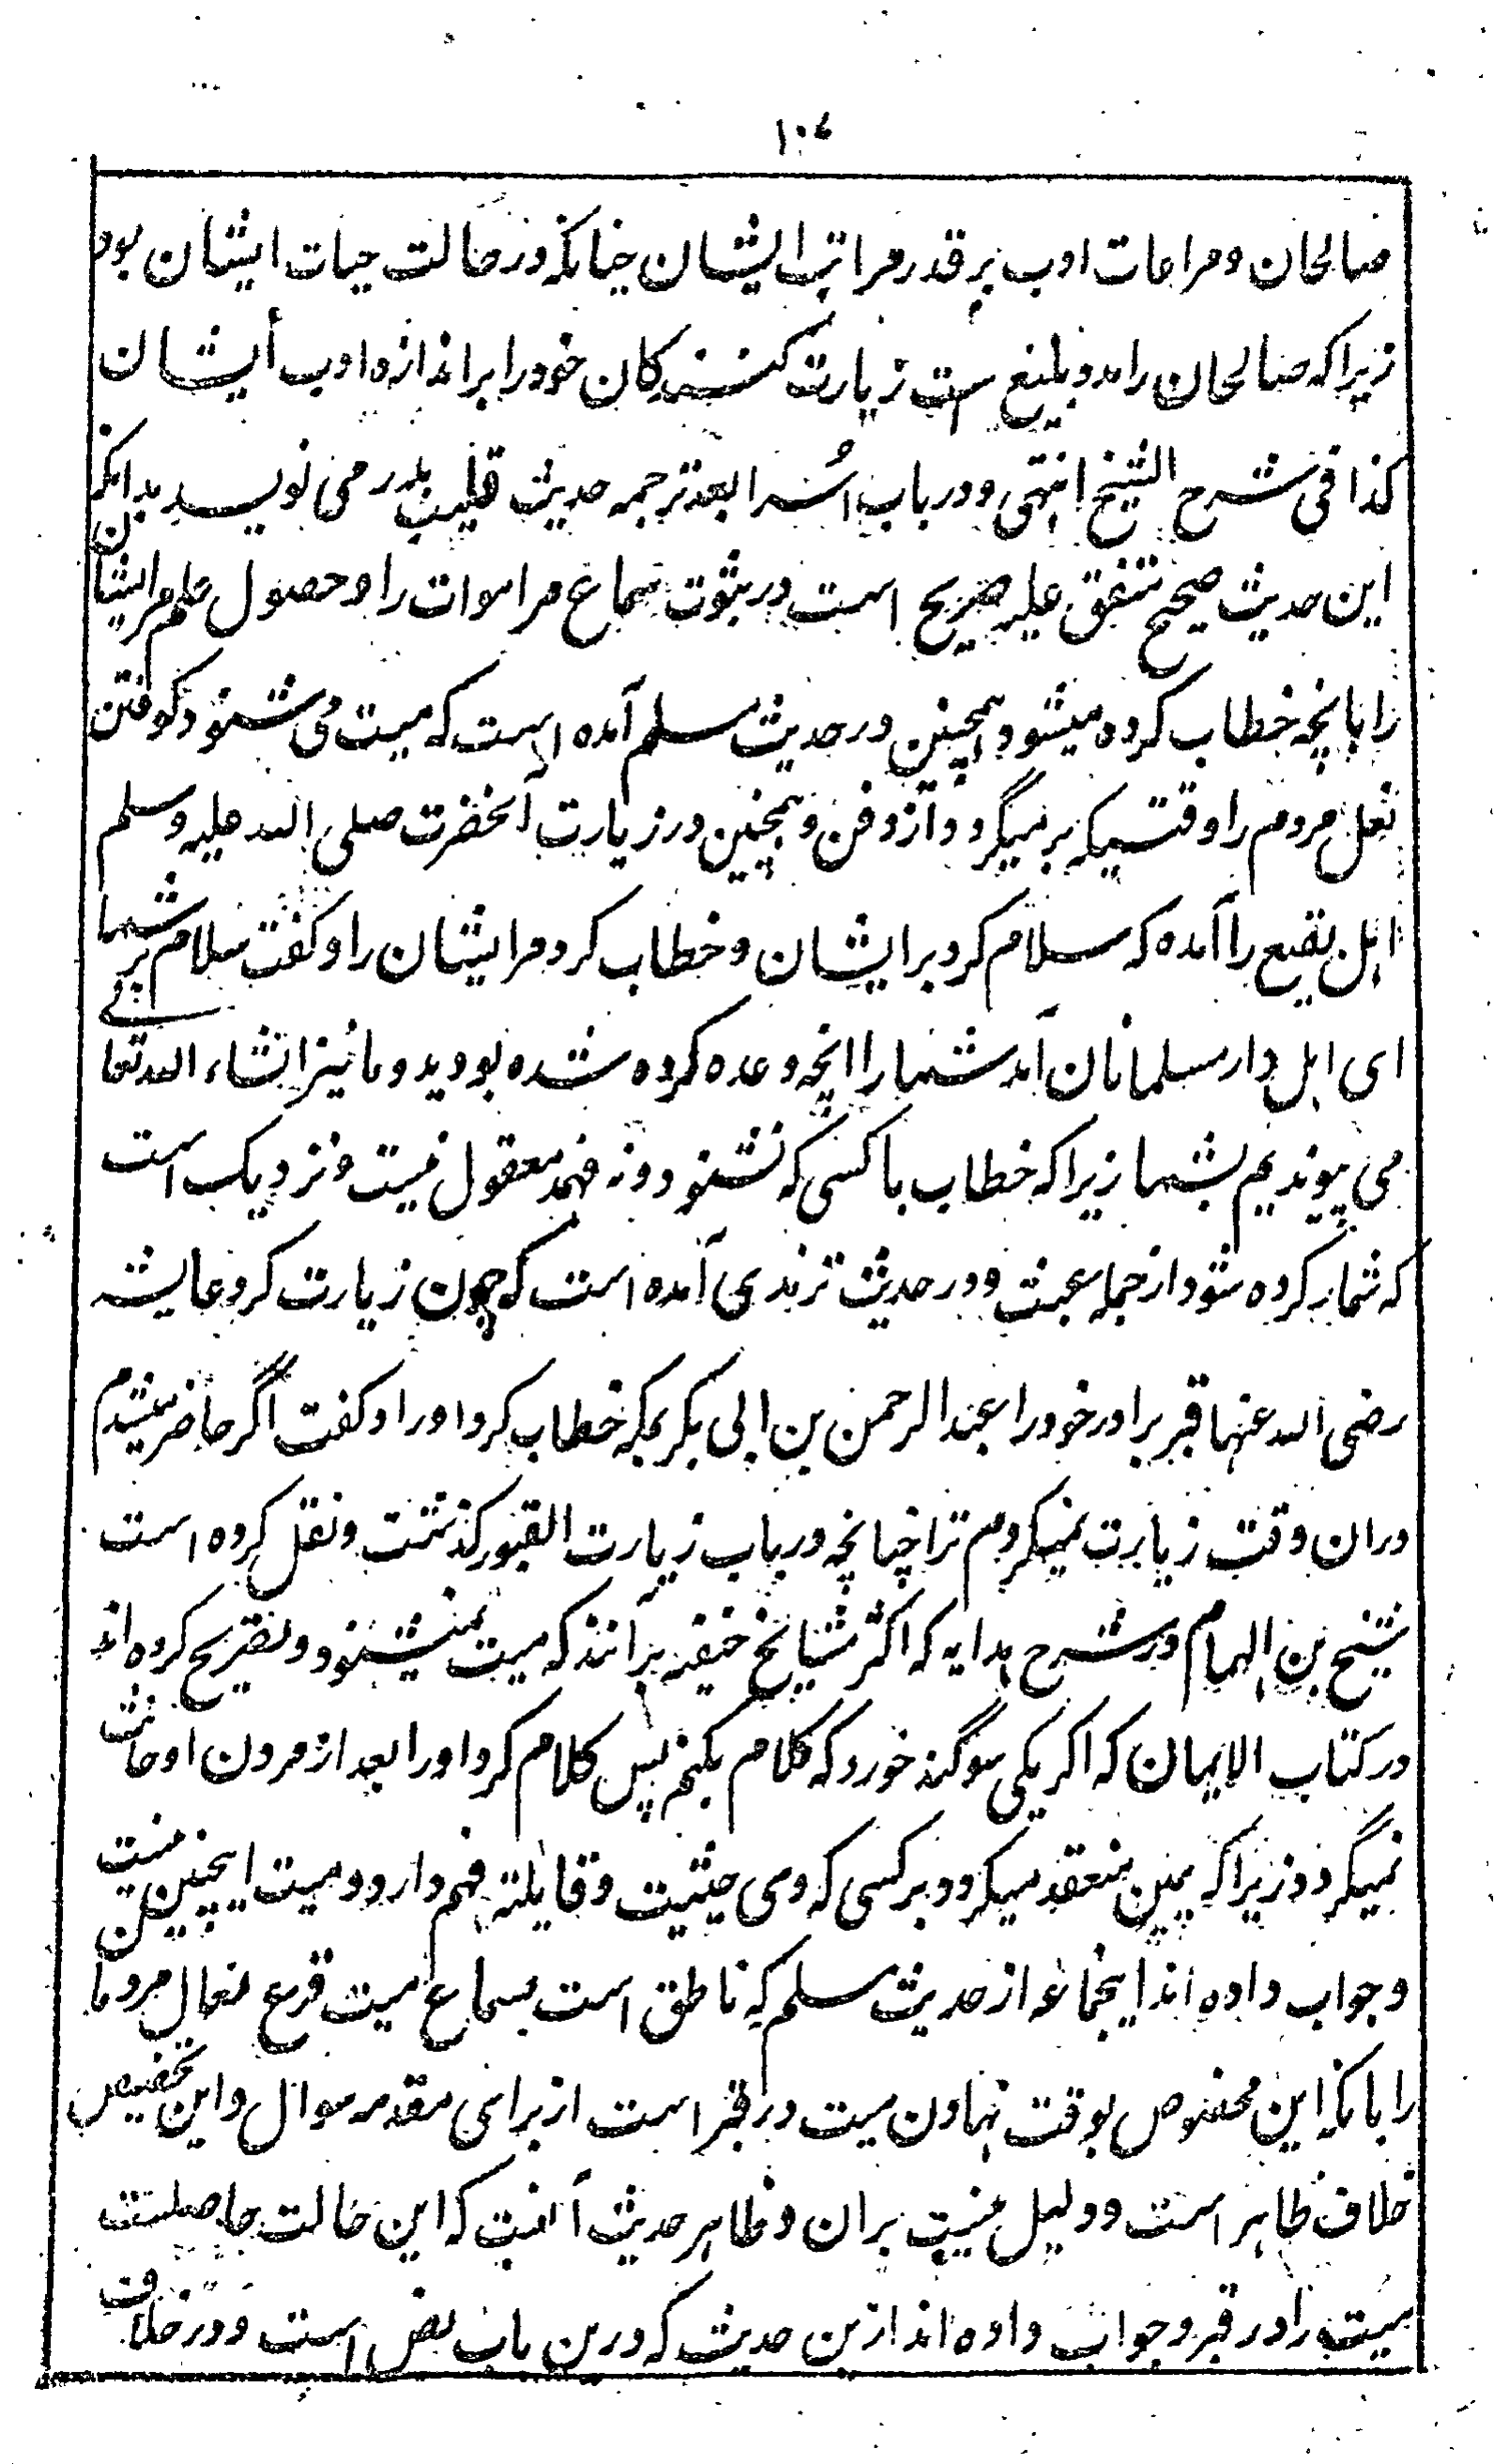 ۱۰۷
صالحان و مراعات ادب بر قدر مراتب ایشان چنانکه در حالت حیات ایشان بود
زیرا که صالحان را مدد بلیغ ست زیارت کنندگان خود را بر اندازه ادب ایشان
کذا فی شرح الشیخ انتهی و در باب اسرا بعد ترجمه حدیث قلیب بدر می نویسد بدانکه
این حدیث صحیح متفق علیه صریح است در ثبوت سماع مر اموات را و حصول علم مر ایشان
را بانچه خطاب کرده میشود همچنین در حدیث مسلم آمده است که میت می شنود کوفتن
نعل مردم را وقتیکه برمیگردد از دفن و همچنین در زیارت آنحضرت صلی الله علیه وسلم
اهل بقیع را آمده که سلام کرد بر ایشان و خطاب کرد مر ایشان را و گفت سلام بر شما
ای اهل دار مسلمانان آمد شما را انچه وعده کرده شده بودید و ما نیز انشاء الله تعالی
می پیوندیم بشما زیرا که خطاب با کسی که نشنود و نه فهمد معقول نیست و نزدیک است
که شمار کرده شود از جمله عبث و در حدیث ترمذی آمده است که چون زیارت کرد عایشه
رضی الله عنها قبر برادر خود را عبد الرحمن بن ابی بکر بمکه خطاب کرد او را و گفت اگر حاضر میشدم
دران وقت زیارت نمیکردم ترا چنانچه در باب زیارت القبور گذشت و نقل کرده است
شیخ بن الهمام در شرح هدایه که اکثر مشایخ حنفیه برانند که میت نمیشنود و تصریح کرده اند
در کتاب الایمان که اگر یکی سوگند خورد که کلام بکنم پس کلام کرد او را بعد از مردن او حانث
نمیگردد زیرا که یمین منعقد میگردد بر کسی که وی حیثیت و قابلیه فهم دارد و میت اینچنین نیست
و جواب داده اند اینجماعه از حدیث مسلم که ناطق است بسماع میت قرع نعال مردمان
را بانکه این مخصوص بوقت نهادن میت در قبر است از برای مقدمه سوال و این تخصیص
خلاف ظاهر است و دلیل نیست بران و ظاهر حدیث آنست که این حالت حاصلست
میت را در قبر و جواب داده اند ازین حدیث که درین باب نص است و در خلاف